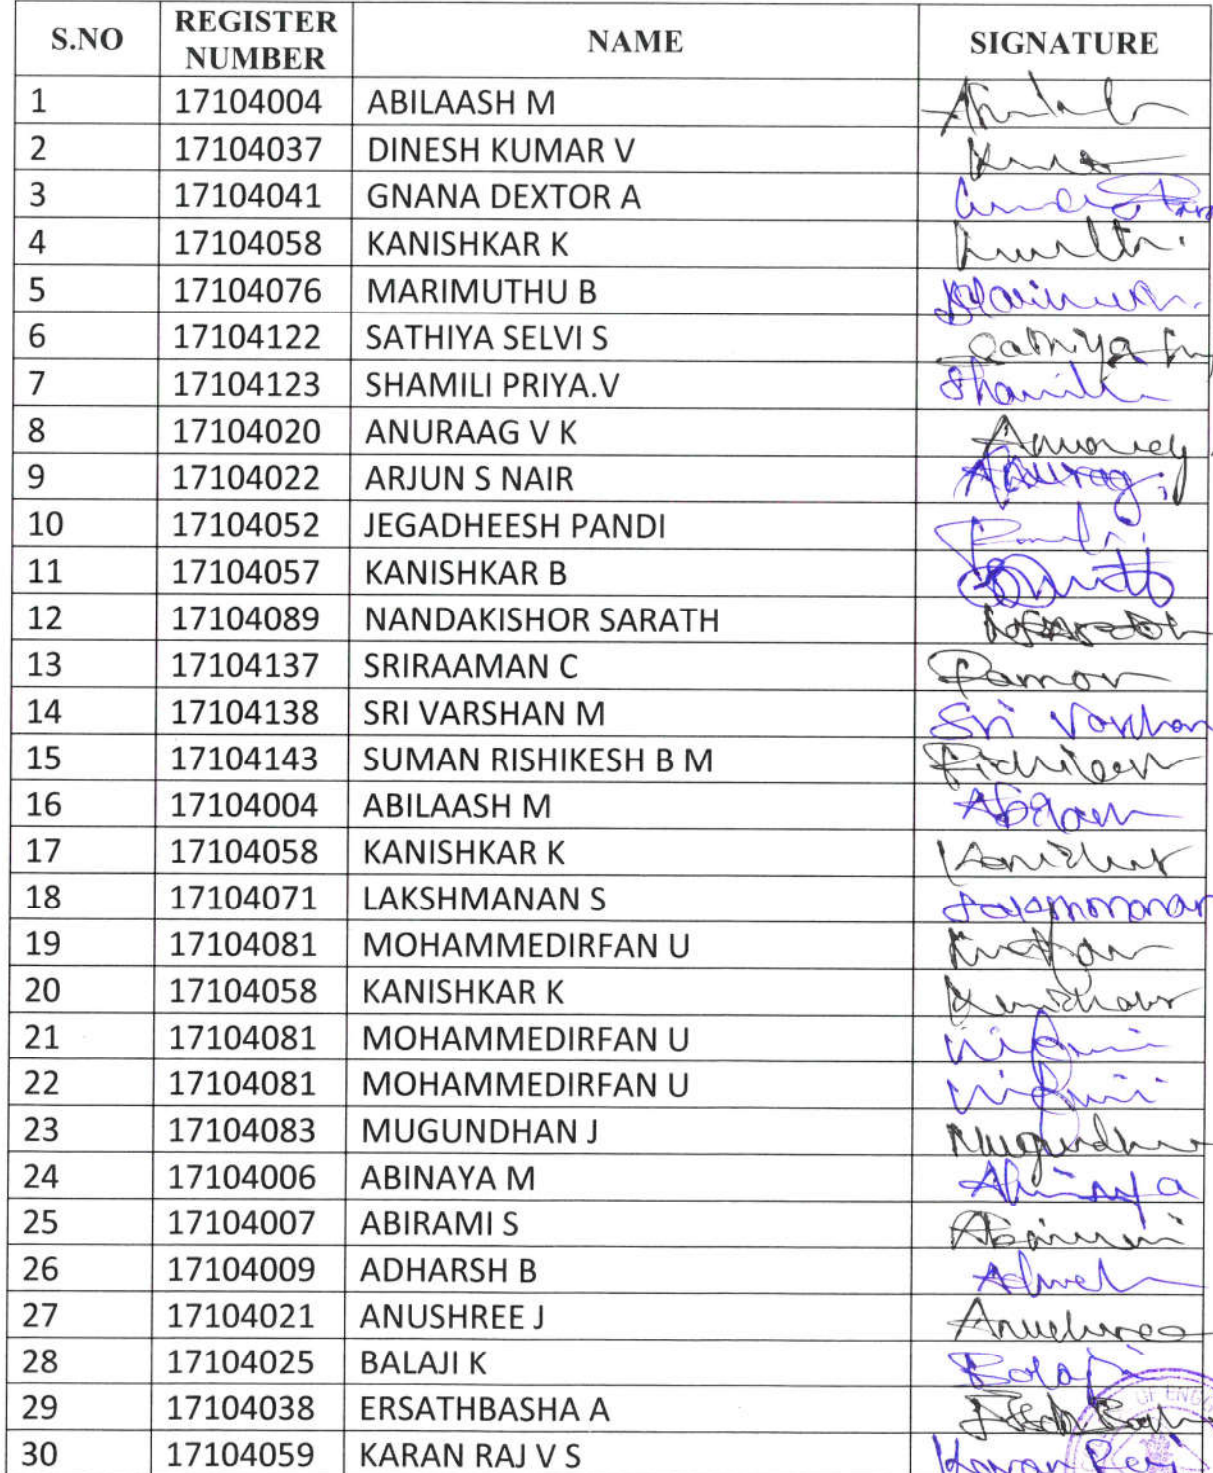 S.NO REGISTER NUMBER NAME SIGNATURE
1 17104004 ABILAASH M
2 17104037 DINESH KUMAR V
3 17104041 GNANA DEXTOR A
4 17104058 KANISHKAR K
5 17104076 MARIMUTHU B
6 17104122 SATHIYA SELVI S Sathiya
7 17104123 SHAMILI PRIYA.V Shamili
8 17104020 ANURAAG V K
9 17104022 ARJUN S NAIR Anurag
10 17104052 JEGADHEESH PANDI
11 17104057 KANISHKAR B
12 17104089 NANDAKISHOR SARATH
13 17104137 SRIRAAMAN C
14 17104138 SRI VARSHAN M Sri Varshan
15 17104143 SUMAN RISHIKESH B M
16 17104004 ABILAASH M
17 17104058 KANISHKAR K
18 17104071 LAKSHMANAN S
19 17104081 MOHAMMEDIRFAN U
20 17104058 KANISHKAR K
21 17104081 MOHAMMEDIRFAN U
22 17104081 MOHAMMEDIRFAN U
23 17104083 MUGUNDHAN J
24 17104006 ABINAYA M Abinaya
25 17104007 ABIRAMI S
26 17104009 ADHARSH B
27 17104021 ANUSHREE J
28 17104025 BALAJI K Balaji
29 17104038 ERSATHBASHA A
30 17104059 KARAN RAJ V S Karan Raj